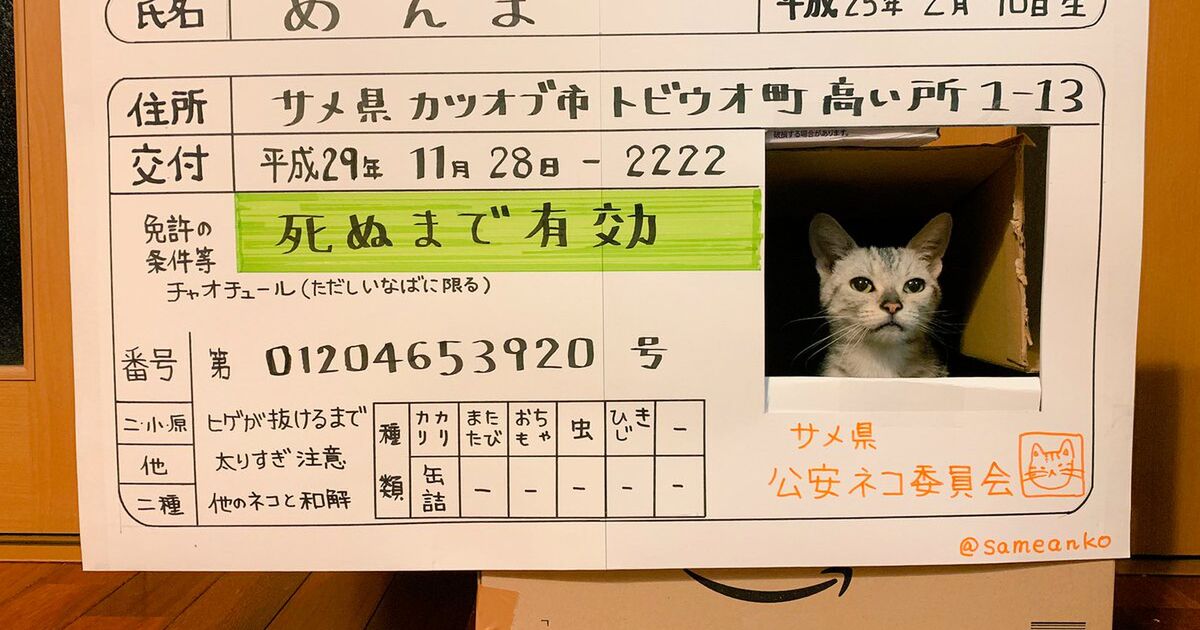 氏名 めんま 平成25年2月10日生
住所 サメ県 カツオブ市 トビウオ町 高い所 1-13
交付 平成29年 11月 28日 - 2222
免許の条件等 死ぬまで有効
チャオチュール(ただしいなばに限る)
番号 第 01204653920 号
二・小・原 ヒゲが抜けるまで
他 太りすぎ注意
二種 他のネコと和解
種類 カリカリ またたび おもちゃ 虫 ひじき -
缶詰 - - - - -
破損する場合があります。
サメ県
公安ネコ委員会
@sameanko